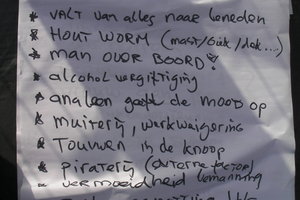 * VALT van alles naar beneden
* HOUT WORM (mast/giek/dek....)
* man OVER BOORD!
* alcohol vergiftiging
* analoon geeft de moed op
* muiterij, werkweigering
* TOUWEN in de knoop
* piraterij (externe factor)
- vermoeidheid bemanning